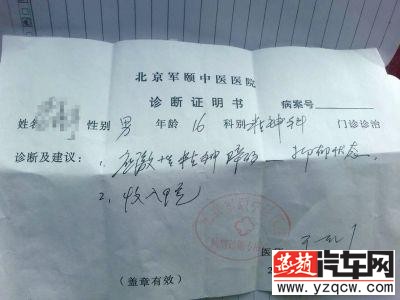 北京军颐中医医院
诊断证明书
病案号
姓名 性别 男 年龄 16 科别 精神科 门诊诊治
诊断及建议：1. 应激性精神障碍——抑郁状态。
2. 收入
医
(盖章有效)
燕赵汽车网
www.yzqcw.com